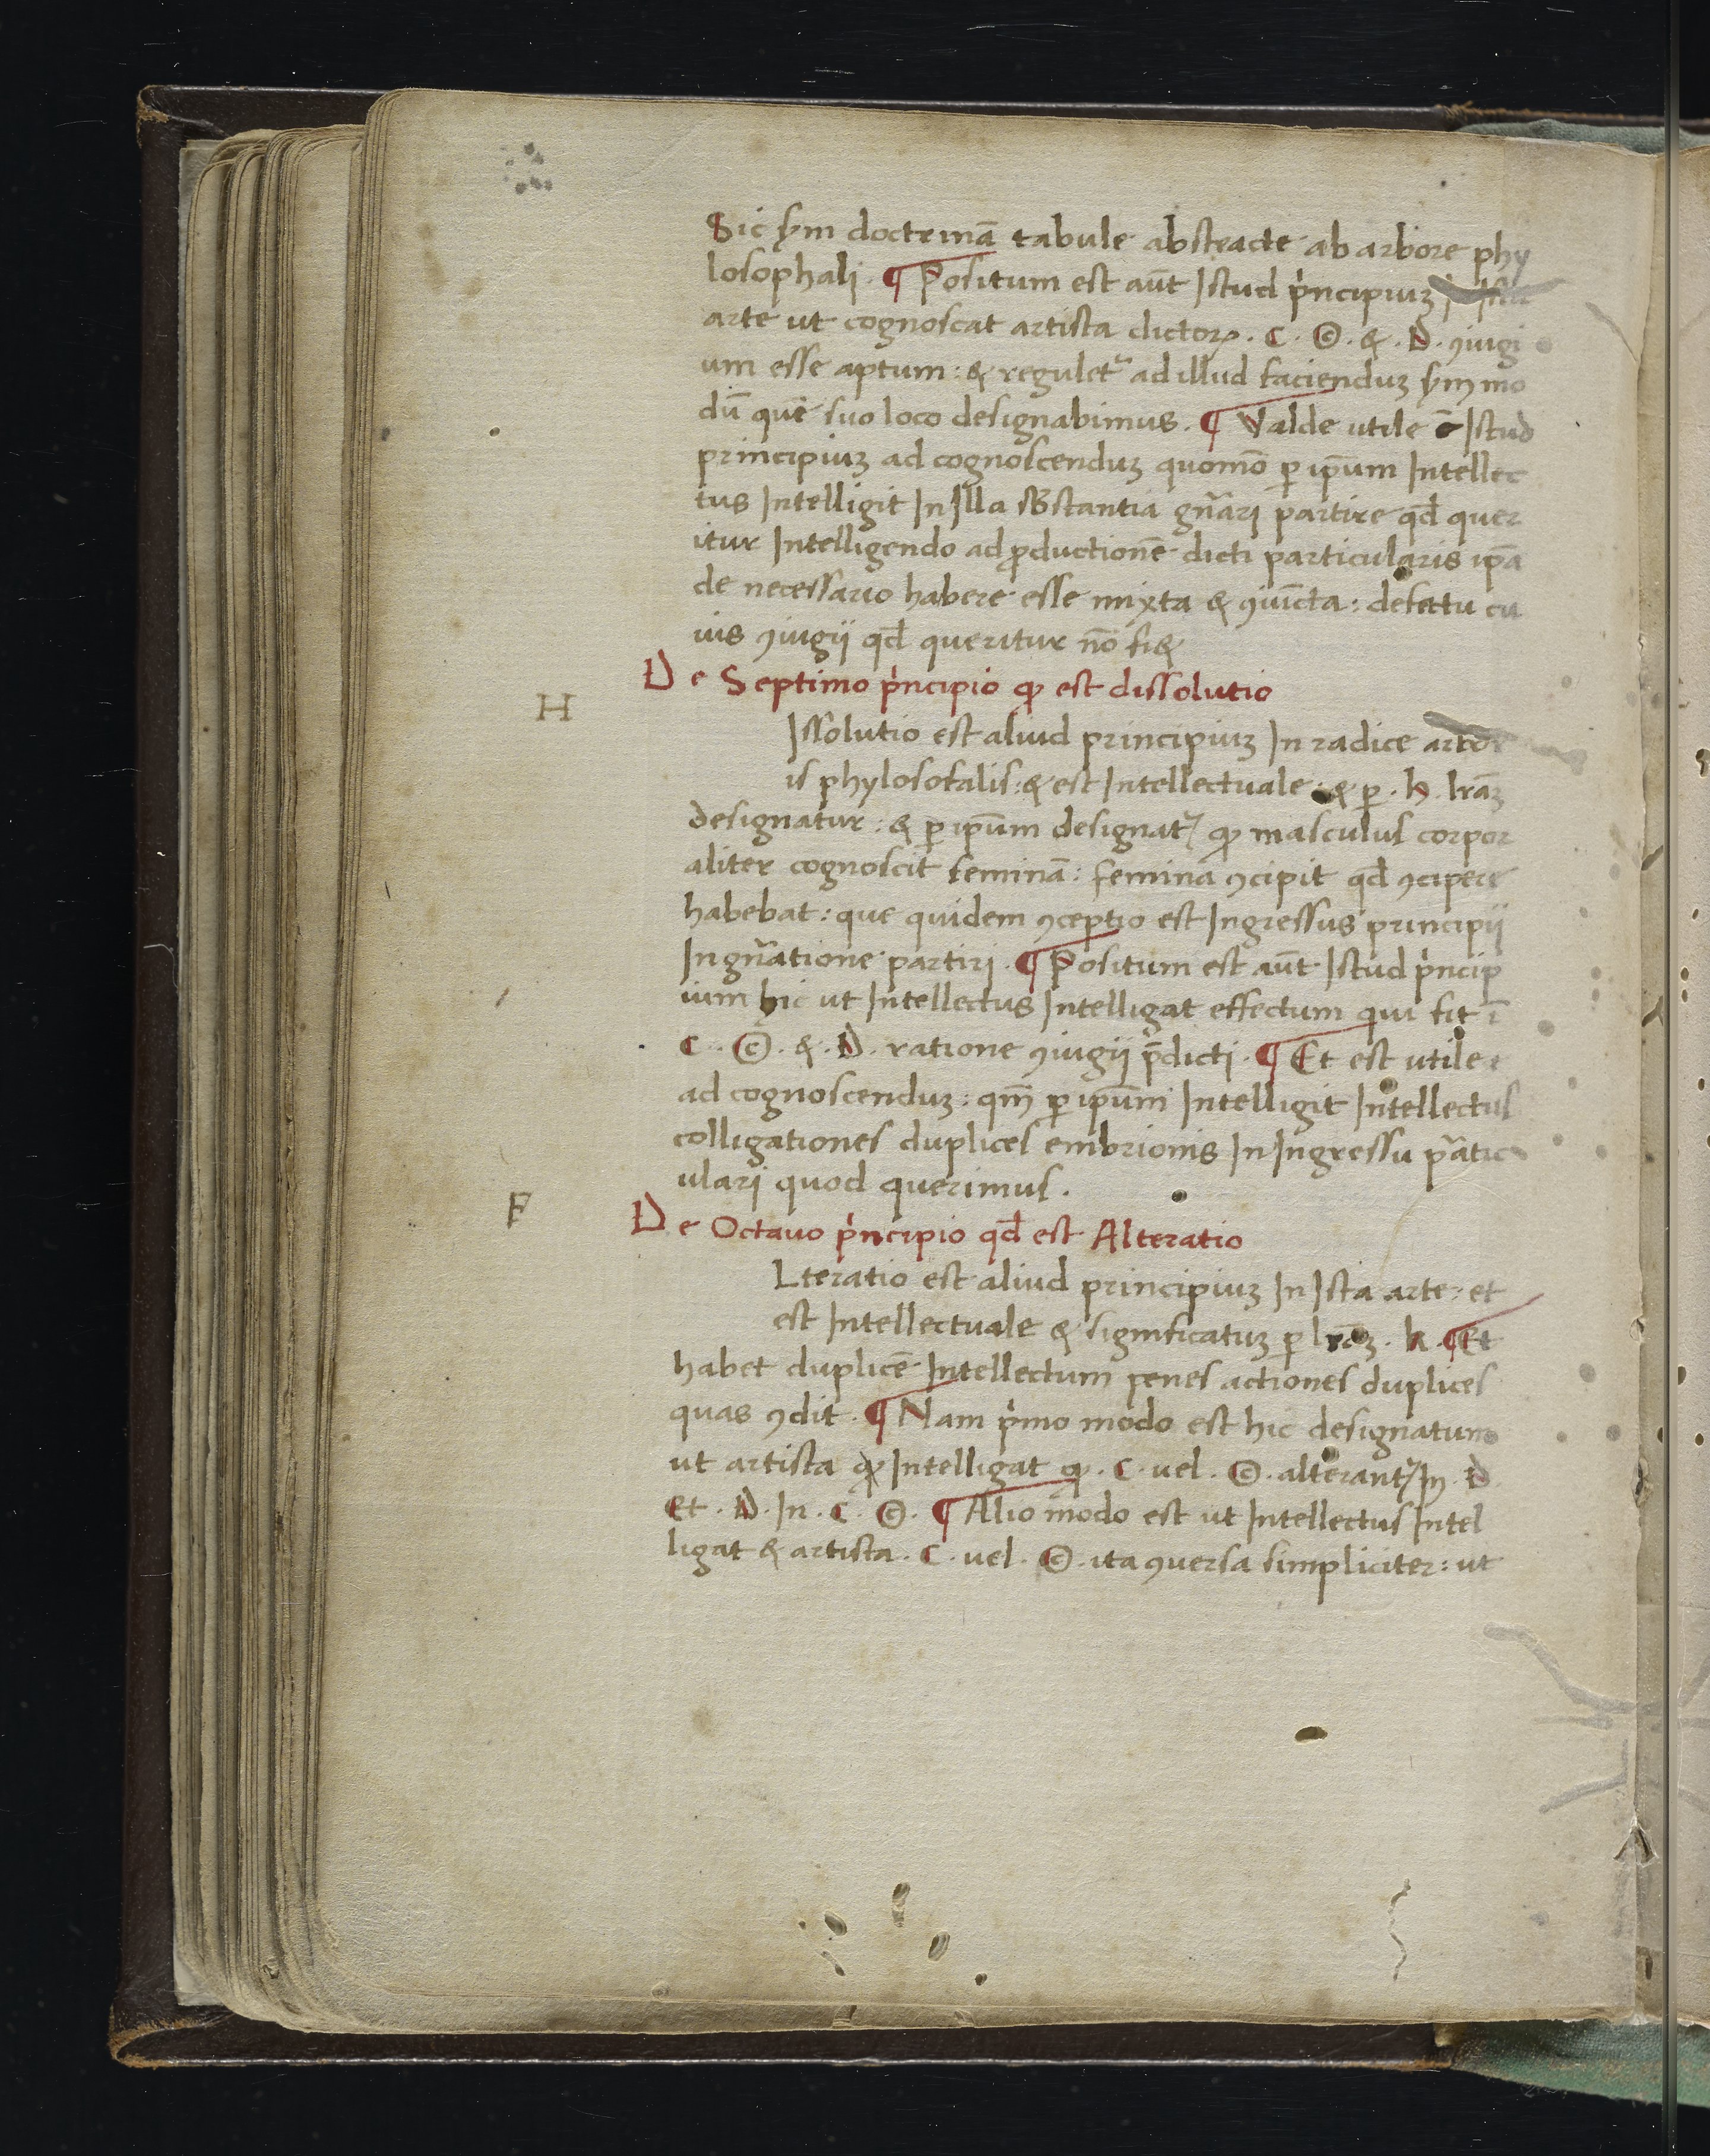 Sic sꝫm doctrinā tabule abstracte ab arbore phy
losophali. ¶ Positum est aūt Istud pͥncipiuꝫ
arte ut cognoscat artista dictoꝝ. C. ©. &. D. ꝯiugi
um esse aptum: & regulet᷑ ad illud facienduꝫ sꝫm mo
dū quē suo loco designabimus. ¶ Valde utile ē Istud
principiuꝫ ad cognoscenduꝫ quomō ꝑ ip̄um Intellec
tus Intelligit In Illa sb̄stantia gn̄ari partire qd̄ quer
itur Intelligendo ad ꝓductionē dicti particularis ip̄a
de necessario habere esse mixta & ꝯiūcta: defectu cu
ius ꝯiugij qd̄ queritur nō fi&
De Septimo pͥncipio ꝙ est dissolutio
H
Issolutio est aliud principiuꝫ In radice arbor
is phylosofalis: & est Intellectuale: & ꝑ. h. lr̄aꝫ
designatur: & ꝑ ip̄um designat᷑ ꝙ masculus corpor
aliter cognoscit feminā: femina ꝯcipit qd̄ ꝯcipere
habebat: que quidem ꝯceptio est Ingressus principij
In gn̄atione partiri. ¶ Positum est aūt Istud pͥncip
ium hic ut Intellectus Intelligat effectum qui fit ī
C. ©. &. D. ratione ꝯiugij p̄dicti. ¶ Et est utile
ad cognoscenduꝫ: qm̄ ꝑ ip̄um Intelligit Intellectus
colligationes duplices embrionis In Ingressu ꝑatic
ulari quod querimus.
F
De Octauo pͥncipio qd̄ est Alteratio
Lteratio est aliud principiuꝫ In Ista arte: et
est Intellectuale & significatuꝫ ꝑ lr̄aꝫ. k. ¶ Et
habet duplicē Intellectum penes actiones duplices
quas ꝯdit. ¶ Nam pͥmo modo est hic designatum
ut artista ꝙ Intelligat ꝙ. C. uel. ©. alterant᷑ In. D
Et. D. In. C. ©. ¶ Alio modo est ut Intellectus Intel
ligat & artista. C. uel. ©. ita ꝯuersa simpliciter: ut